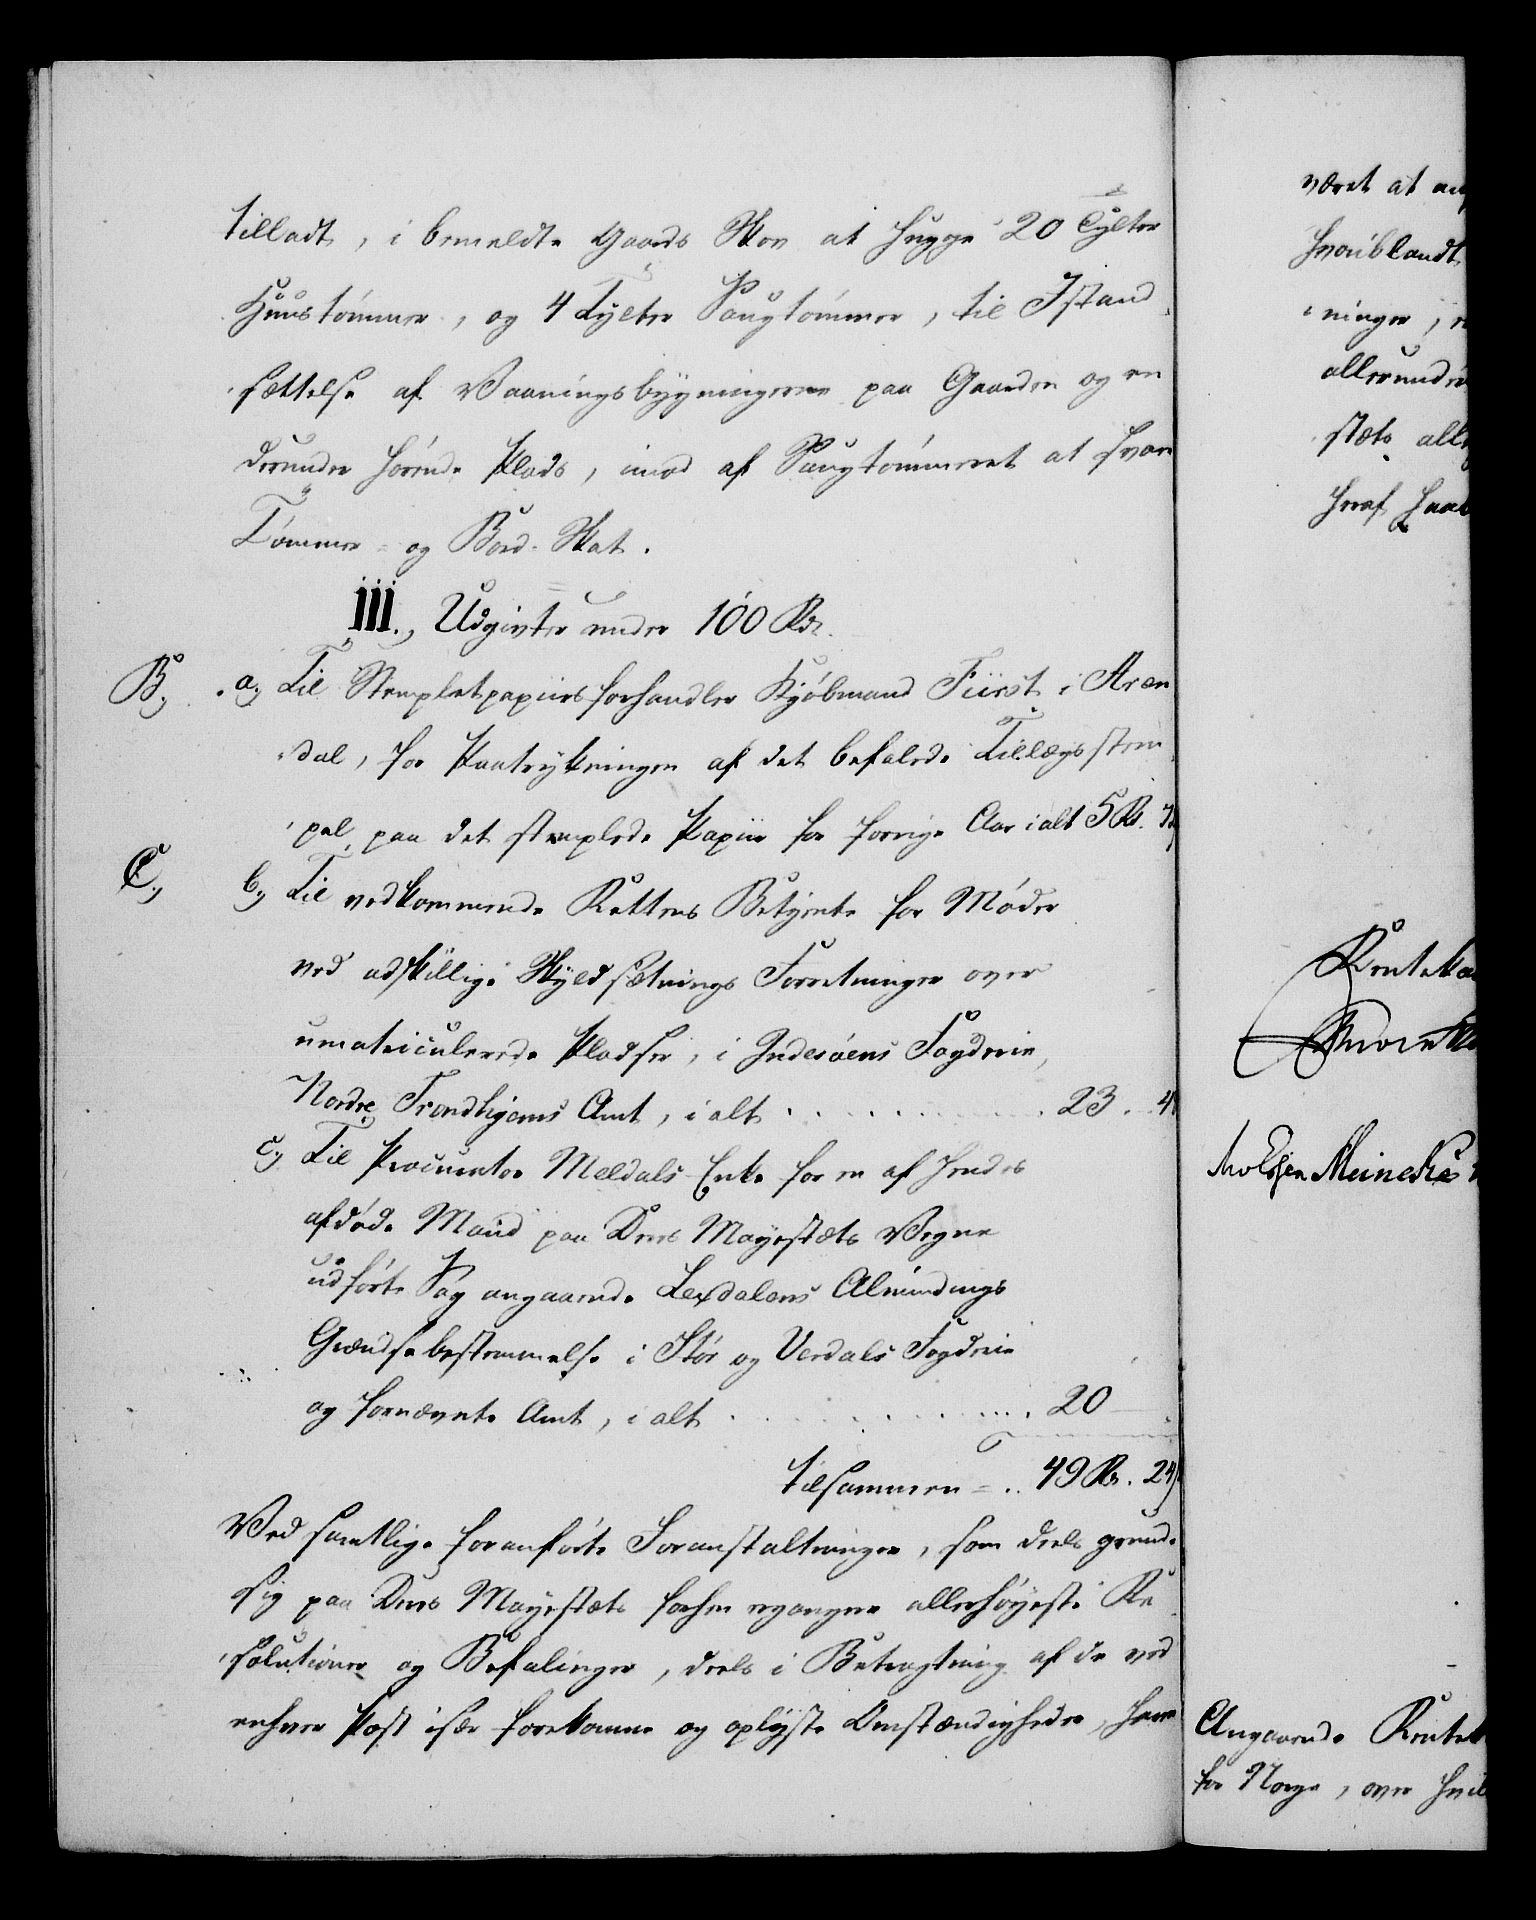 tilladt, i bemeldte Gaards Skov at hugge 20 Tylter
Huustömmer, og 4 Tylter Saugtömmer, til Istand
sættelse af Vaaningsbygningerne paa Gaarden og en
derunder hörende Plads, imod af Saugtömmeret at svare
Tömmer- og Bord-Skat.
III., Udgivter under 100 Rdr.
B, a, Til Stempletpapiirsforhandler Kjöbmand Fürst i Aren
dal, for Paatrykningen af det befalede Tillægsstem
pel, paa det stemplede Papiir for forrige Aar ialt 5 Rd.
C, b, Til vedkommende Rettens Betjente for Möder
ved adskillige Skyldsætnings Forretninger over
umatriculerede Pladser, i Inderöens Fogderie,
Nordre Trondhjems Amt, i alt . . . . . . . . . 23. 4
c, Til Procurator Meldals Enke for en af hendes
afdöde Mand paa Deres Mayestæts Vegne
udförte Sag angaaende Lexdalens Almindings
Grændsebestemmelse i Stör og Verdals Fogderie
og fornævnte Amt, i alt . . . . . . . . . 20
tilsammen = .. 49 Rd. 24
Ved samtlige foranförte Foranstaltninger, som deels grunde
sig paa Deres Mayestæts forhen ergangne allerhöyeste Re
solutioner og Befalinger, deels i Betragtning af de ved
enhver Post især forekomne og oplyste Omstændigheder, have
været at an
hvoriblandt
ninger,
allerunder
stæts all
heraf haa
Renteka
Knoph
Meinche
Angaaende Rentek
for Norge, over hvil